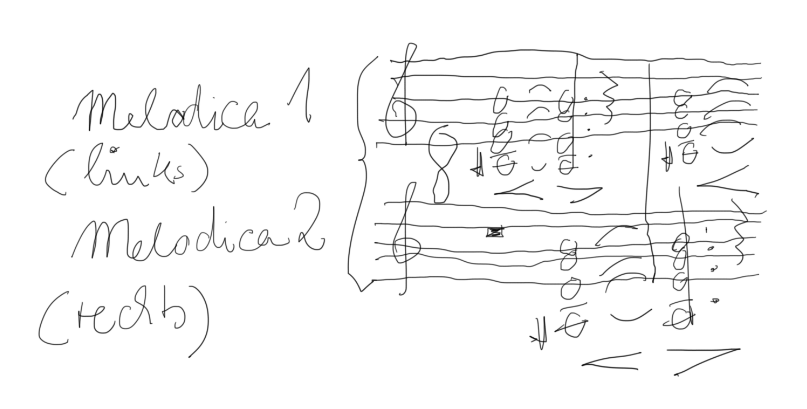 Melodica 1
(links)
Melodica 2
(rechts)
8